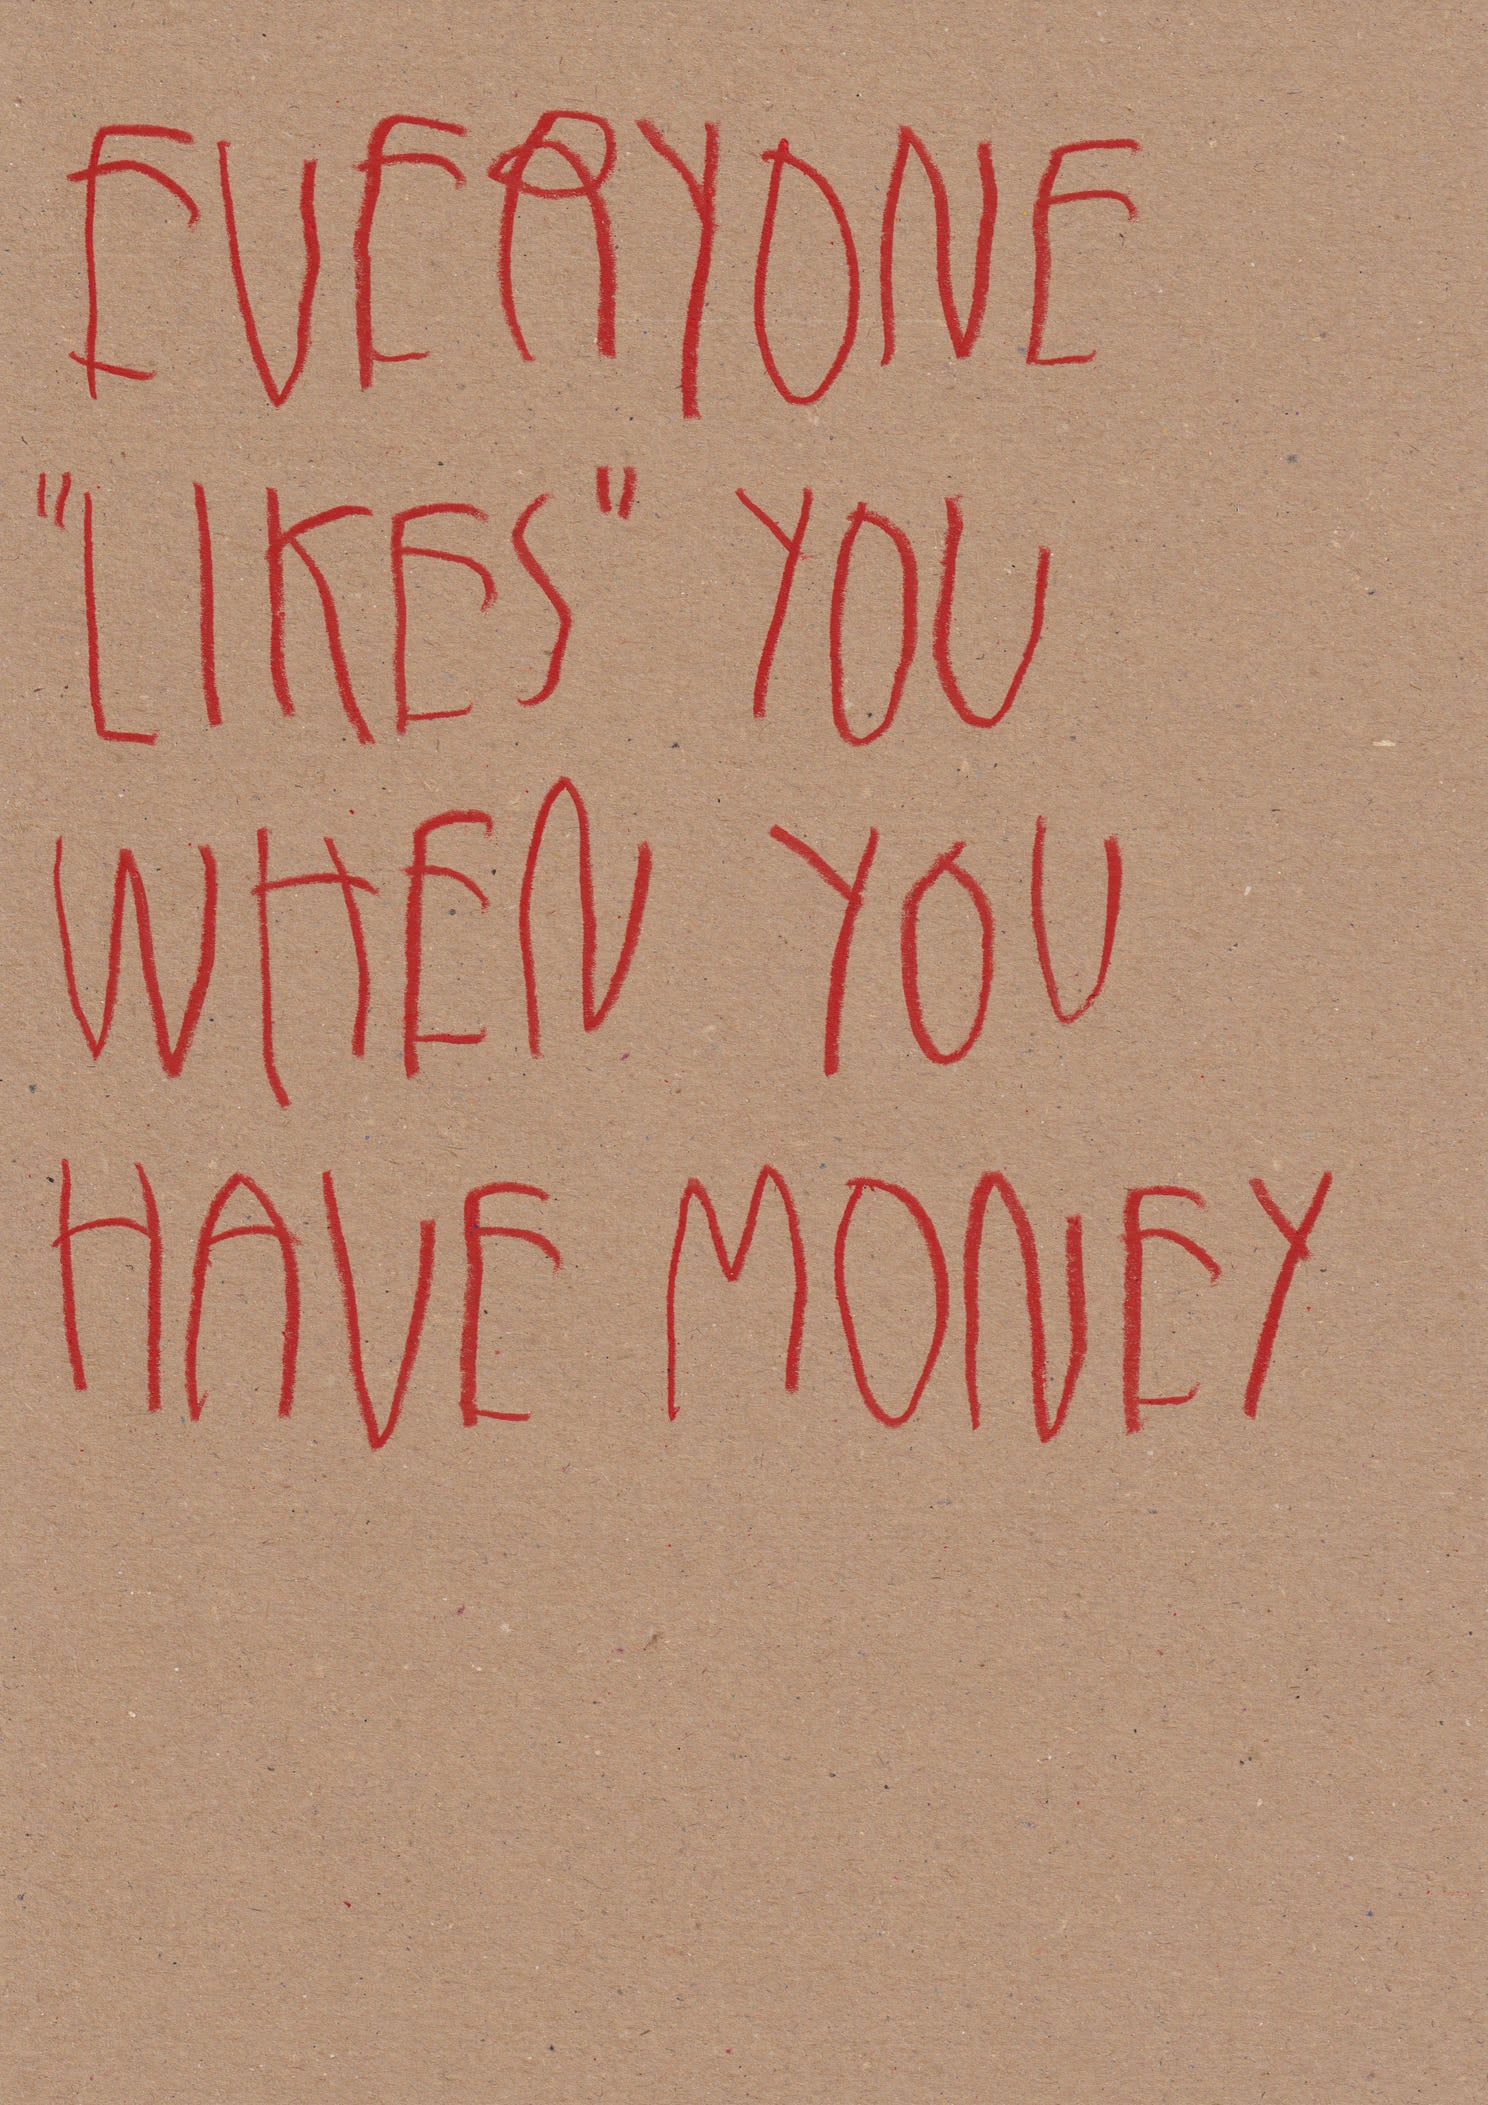 EVERYONE
"LIKES" YOU
WHEN YOU
HAVE MONEY